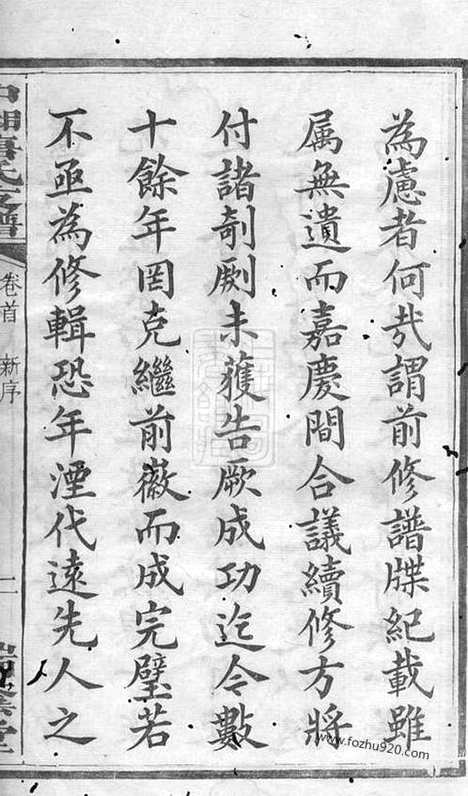 為慮者何㢤謂前修譜牒紀載雖
属無遺而嘉慶間合議續修方將
付諸剞劂未獲告厥成功迄今數
十餘年罔克繼前徽而成完璧若
不亟為修輯恐年湮代遠先人之
中湘 氏 譜
卷首 新序
二
堂
www.fozhu920.com